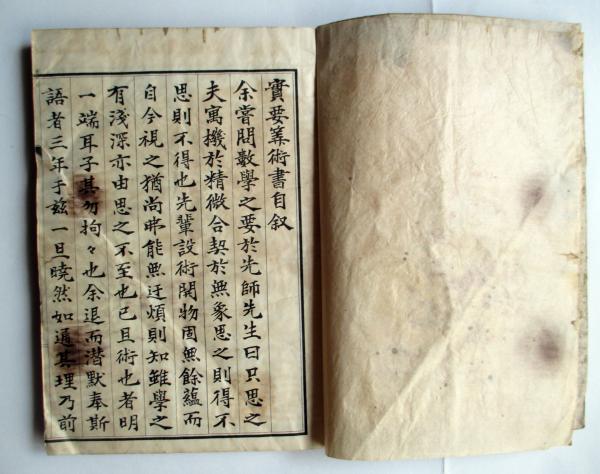 實要筭術書自叙
余嘗問數學之要於先師先生曰只思之
夫寓機於精微合契於無象思之則得不
思則不得也先輩設術開物固無餘蘊而
自今視之猶尚弗能無迂煩則知雖學之
有淺深亦由思之不至也已且術也者明
一端耳子其勿拘々也余退而潜默奉斯
語者三年于茲一旦曉然如通其理乃前